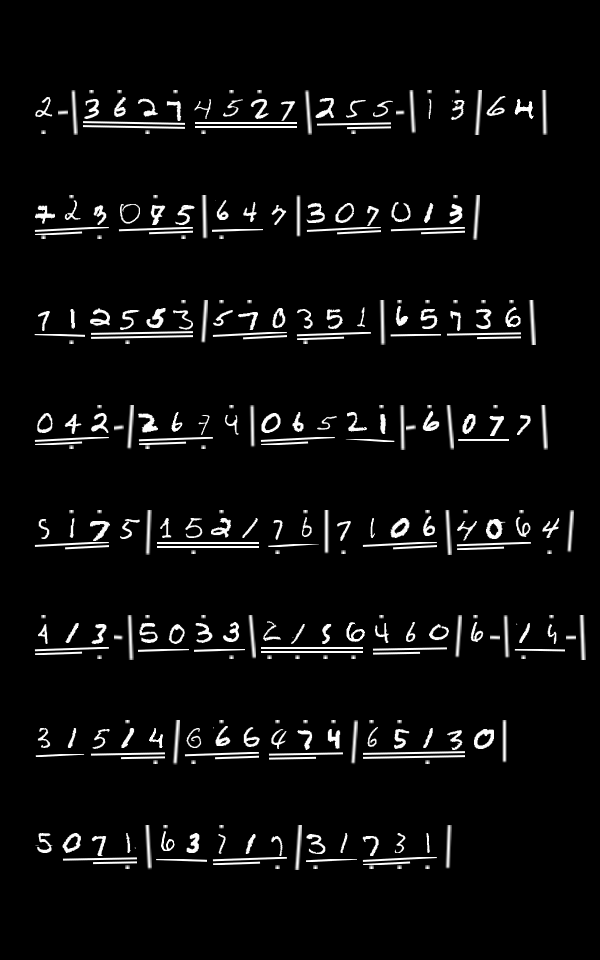 2-|3627 4527|255-|13|64|
723 075|647|307 013|
71 2553|570 351|65 736|
042-|2674|0652 1|-6|077|
5175|1521 76|7106|4064|
413-|50 33|2156 460|6-|14-|
31 514|666 474|65130|
5071|63 717|31 731|